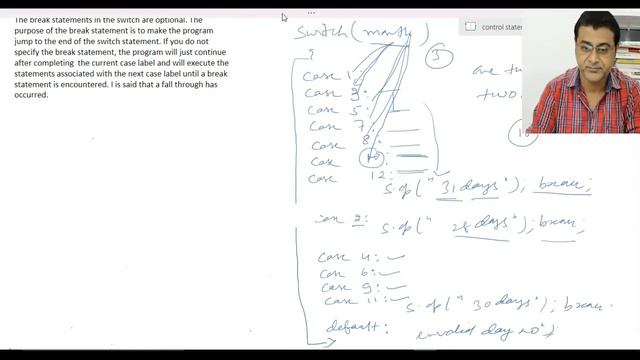 The break statements in the switch are optional. The
purpose of the break statement is to make the program
jump to the end of the switch statement. If you do not
specify the break statement, the program will just continue
after completing the current case label and will execute the
statements associated with the next case label until a break
statement is encountered. I is said that a fall through has
occurred.
control statem
switch(month)
{
3
case 1:
case 3:
case 5:
case 7:
case 8:
case 10:
case 12:
S.op("31 days"); break;
case 2: S.op("28 days"); break;
case 4:
case 6:
case 9:
case 11: S.op("30 days"); break.
default: invalid day no";
two.
10